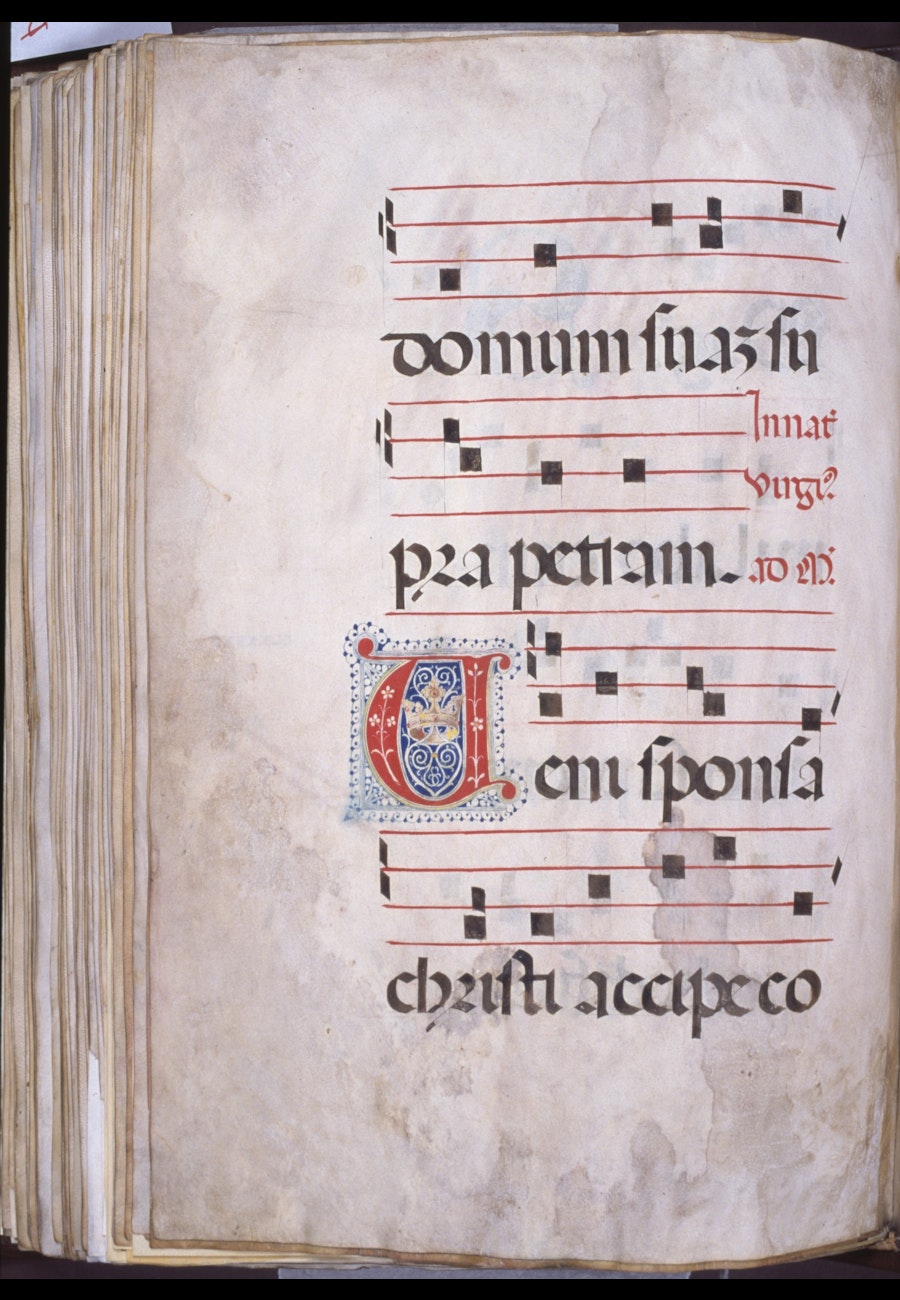 domum suaz su
In nat̄
virgı̄ꝰ.
pra petram. ad M̄.
Veni sponsa
christi accipe co